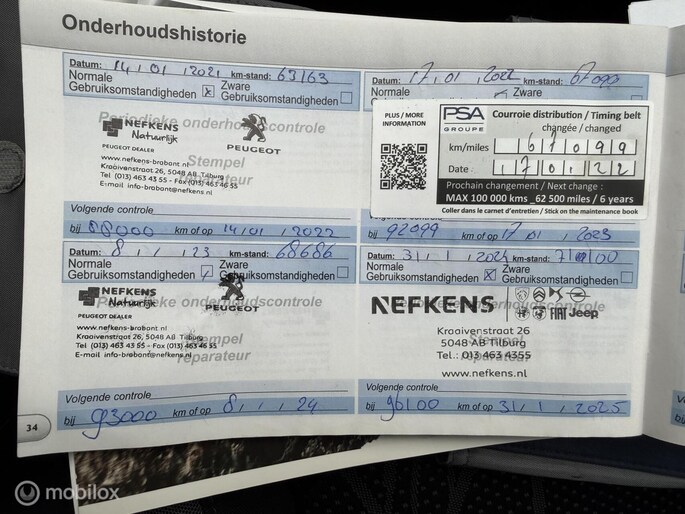 Onderhoudshistorie
Datum: 14 / 01 / 2021 km-stand: 63163
Normale Gebruiksomstandigheden x Zware Gebruiksomstandigheden
Periodieke onderhoudscontrole
NEFKENS
Natuurlijk
PEUGEOT DEALER
PEUGEOT
www.nefkens-brabant.nl
Kraaivenstraat 26, 5048 AB Tilburg
Tel (013) 463 43 55 - Fax (013) 463 46 55
E-mail info-brabant@nefkens.nl
Stempel
reparateur
Volgende controle
bij 88000 km of op 14 / 01 / 2022
Datum: 17 / 01 / 2022 km-stand: 67099
Normale Gebruiksomstandigheden Zware
PLUS / MORE
INFORMATION
PSA
GROUPE
Courroie distribution / Timing belt
changée / changed
km/miles 67099
Date 170122
Prochain changement / Next change :
MAX 100 000 kms _62 500 miles / 6 years
Coller dans le carnet d'entretien / Stick on the maintenance book
bij 92099 km of op 17 / 01 / 2023
Datum: 8 / 1 / 23 km-stand: 68686
Normale Gebruiksomstandigheden Zware Gebruiksomstandigheden
Periodieke onderhoudscontrole
NEFKENS
Natuurlijk
PEUGEOT DEALER
PEUGEOT
www.nefkens-brabant.nl
Kraaivenstraat 26, 5048 AB Tilburg
Tel (013) 463 43 55 - Fax (013) 463 46 55
E-mail info-brabant@nefkens.nl
Stempel
reparateur
Volgende controle
bij 93000 km of op 8 / 1 / 24
Datum: 31 / 1 / 2024 km-stand:
Normale Gebruiksomstandigheden x Zware Gebruiksomstandigheden
Periodieke onderhoudscontrole
NEFKENS
FIAT Jeep
Kraaivenstraat 26
5048 AB Tilburg
Tel.: 013 463 4355
www.nefkens.nl
Stempel
reparateur
Volgende controle
bij 96100 km of op 31 / 1 / 2025
34
mobilox